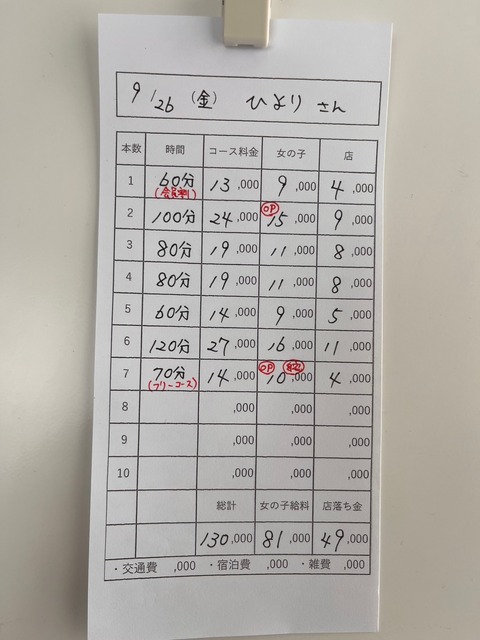 9/26 (金) ひより さん
本数 時間 コース料金 女の子 店
1 60分 13,000 9,000 4,000
(会員割)
OP
2 100分 24,000 15,000 9,000
3 80分 19,000 11,000 8,000
4 80分 19,000 11,000 8,000
5 60分 14,000 9,000 5,000
6 120分 27,000 16,000 11,000
OP
7 70分 14,000 10,000 4,000
(フリーコース)
8 ,000 ,000 ,000
9 ,000 ,000 ,000
10 ,000 ,000 ,000
総計 女の子給料 店落ち金
130,000 81,000 49,000
・交通費 ,000 ・宿泊費 ,000 ・雑費 ,000